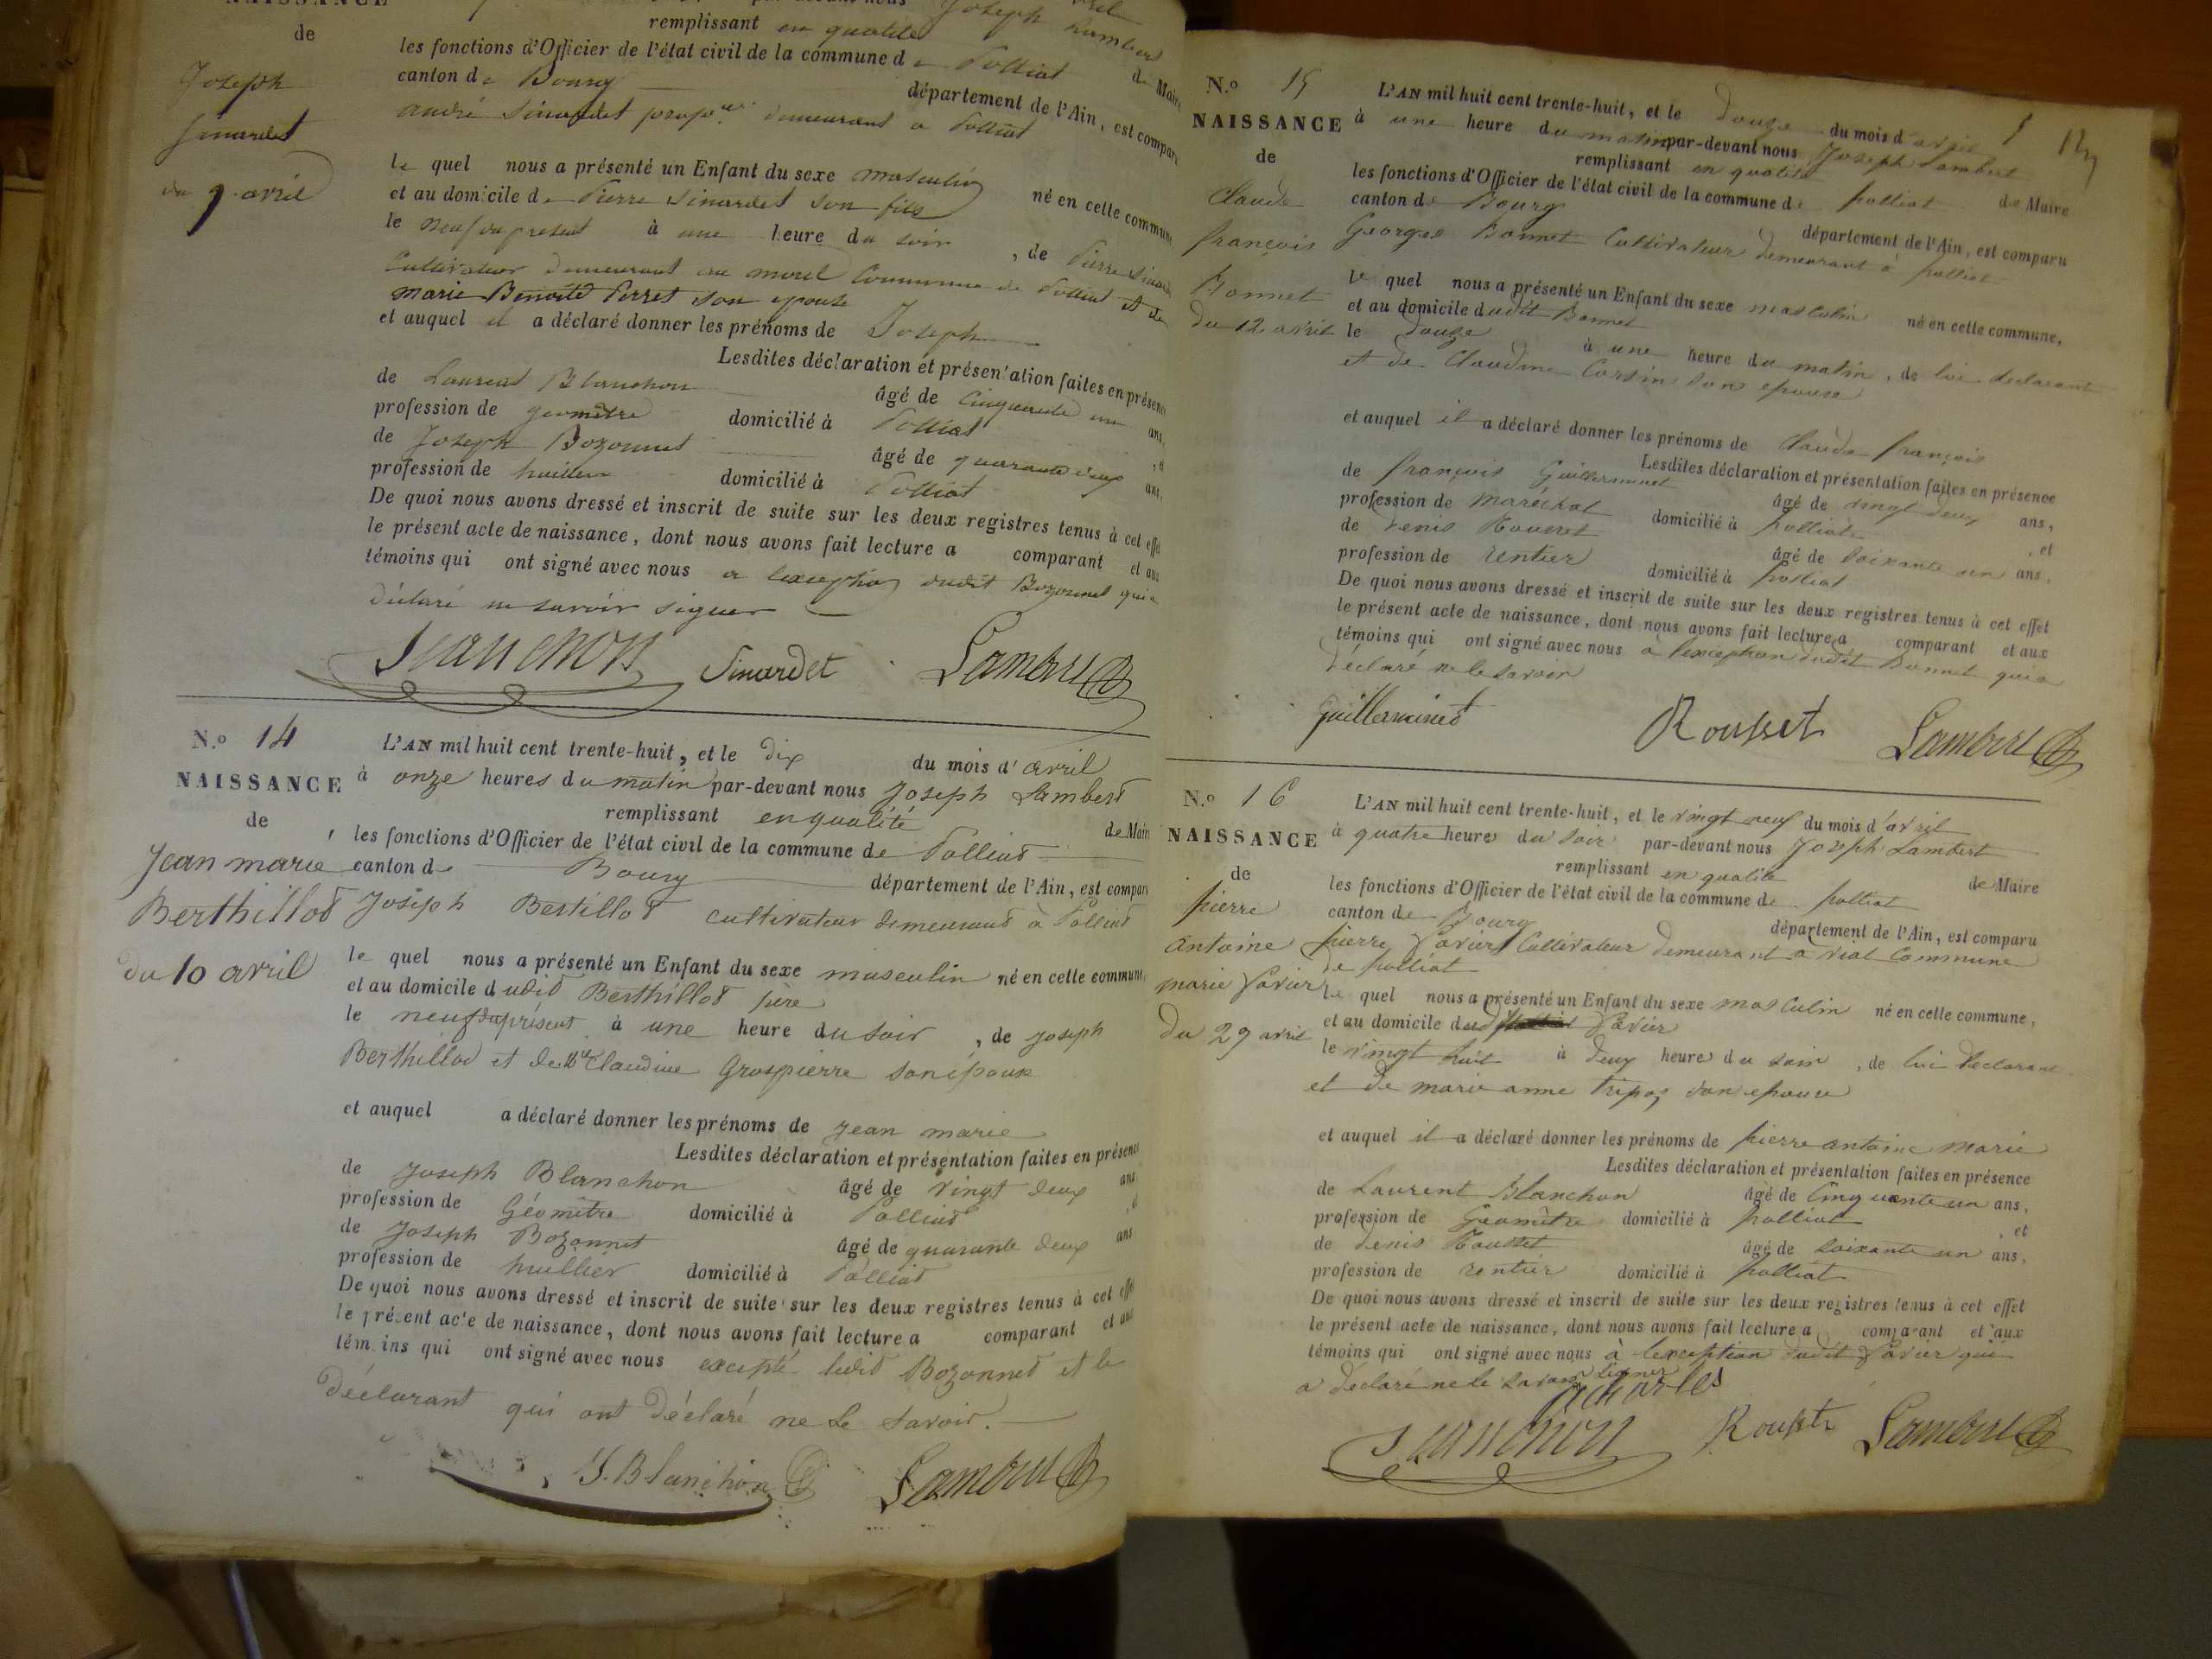 NAISSANCE
de
Joseph
Sinardet
du 9 avril
par devant nous Joseph Lambert
remplissant en qualité de Maire
les fonctions d'Officier de l'état civil de la commune de Polliat
canton de Bourg département de l'Ain, est comparu
andré Sinardet demeurant a Polliat
le quel nous a présenté un Enfant du sexe masculin né en cette commune
et au domicile de Pierre Sinardet son fils
le neuf du présent à une heure du soir, de Pierre Sinardet
Cultivateur demeurant au Commune de Polliat et de
marie Benoite Perret son epouse
et auquel il a déclaré donner les prénoms de Joseph
Lesdites déclaration et présentation faites en présence
de Laurent Blanchon âgé de Cinquante un ans,
profession de géomètre domicilié à Polliat, et
de Joseph Bozonnet âgé de quarante deux ans,
profession de huillier domicilié à Polliat
De quoi nous avons dressé et inscrit de suite sur les deux registres tenus à cet effet
le présent acte de naissance, dont nous avons fait lecture a comparant et aux
témoins qui ont signé avec nous a lexception dudit Bozonnet qui a
déclaré ne savoir signer
Blanchon Sinardet Lambert
N.º 14
NAISSANCE
de
Jean marie
Berthillod
du 10 avril
L'AN mil huit cent trente-huit, et le dix du mois d'avril
à onze heures du matin par-devant nous Joseph Lambert
remplissant en qualité de Maire
les fonctions d'Officier de l'état civil de la commune de Polliat
canton de Bourg département de l'Ain, est comparu
Joseph Bertillod cultivateur demeurant à Polliat
le quel nous a présenté un Enfant du sexe masculin né en cette commune,
et au domicile dudit Berthillod père
le neuf du présent à une heure du soir, de Joseph
Berthillod et de Claudine Grospierre son épouse
et auquel a déclaré donner les prénoms de Jean marie
Lesdites déclaration et présentation faites en présence
de Joseph Blanchon âgé de vingt deux ans
profession de Géomètre domicilié à Polliat, et
de Joseph Bozonnet âgé de quarante deux ans
profession de huillier domicilié à Polliat
De quoi nous avons dressé et inscrit de suite sur les deux registres tenus à cet effet
le présent acte de naissance, dont nous avons fait lecture a comparant et aux
témoins qui ont signé avec nous excepté ledit Bozonnet et le
déclarant qui ont déclaré ne le savoir.
J. Blanchon Lambert
N.º 15
NAISSANCE
de
Claude
françois
Bonnet
du 12 avril
L'AN mil huit cent trente-huit, et le douze du mois d'avril
à une heure du matin par-devant nous Joseph Lambert
remplissant en qualité de Maire
les fonctions d'Officier de l'état civil de la commune de polliat
canton de Bourg département de l'Ain, est comparu
Georges Bonnet Cultivateur demeurant à polliat
le quel nous a présenté un Enfant du sexe masculin né en cette commune,
et au domicile dudit Bonnet
le douze à une heure du matin, de lui declarant
et de Claudine Corsin son epouse
et auquel il a déclaré donner les prénoms de Claude françois
Lesdites déclaration et présentation faites en présence
de françois Guillerminet âgé de vingt deux ans,
profession de maréchal domicilié à polliat, et
de denis Rousset âgé de soixante un ans,
profession de rentier domicilié à polliat
De quoi nous avons dressé et inscrit de suite sur les deux registres tenus à cet effet
le présent acte de naissance, dont nous avons fait lecture a comparant et aux
témoins qui ont signé avec nous à lexception dudit Bonnet qui a
déclaré ne le savoir
Guillerminet Rousset Lambert
N.º 16
NAISSANCE
de
pierre
antoine
marie Savier
du 29 avril
L'AN mil huit cent trente-huit, et le vingt neuf du mois d'avril
à quatre heures du soir par-devant nous Joseph Lambert
remplissant en qualité de Maire
les fonctions d'Officier de l'état civil de la commune de polliat
canton de Bourg département de l'Ain, est comparu
pierre Savier Cultivateur demeurant a viat Commune
de polliat
le quel nous a présenté un Enfant du sexe masculin né en cette commune,
et au domicile dud Savier
le vingt huit à deux heures du soir, de lui declarant
et de marie anne tripoz son epouse
et auquel il a déclaré donner les prénoms de pierre antoine marie
Lesdites déclaration et présentation faites en présence
de Laurent Blanchon âgé de Cinquante un ans,
profession de Géomètre domicilié à polliat, et
de denis Rousset âgé de soixante un ans,
profession de rentier domicilié à polliat
De quoi nous avons dressé et inscrit de suite sur les deux registres tenus à cet effet
le présent acte de naissance, dont nous avons fait lecture a comparant et aux
témoins qui ont signé avec nous à lexception dudit Savier qui
a déclaré ne le savoir signer
Blanchon Rousset Lambert